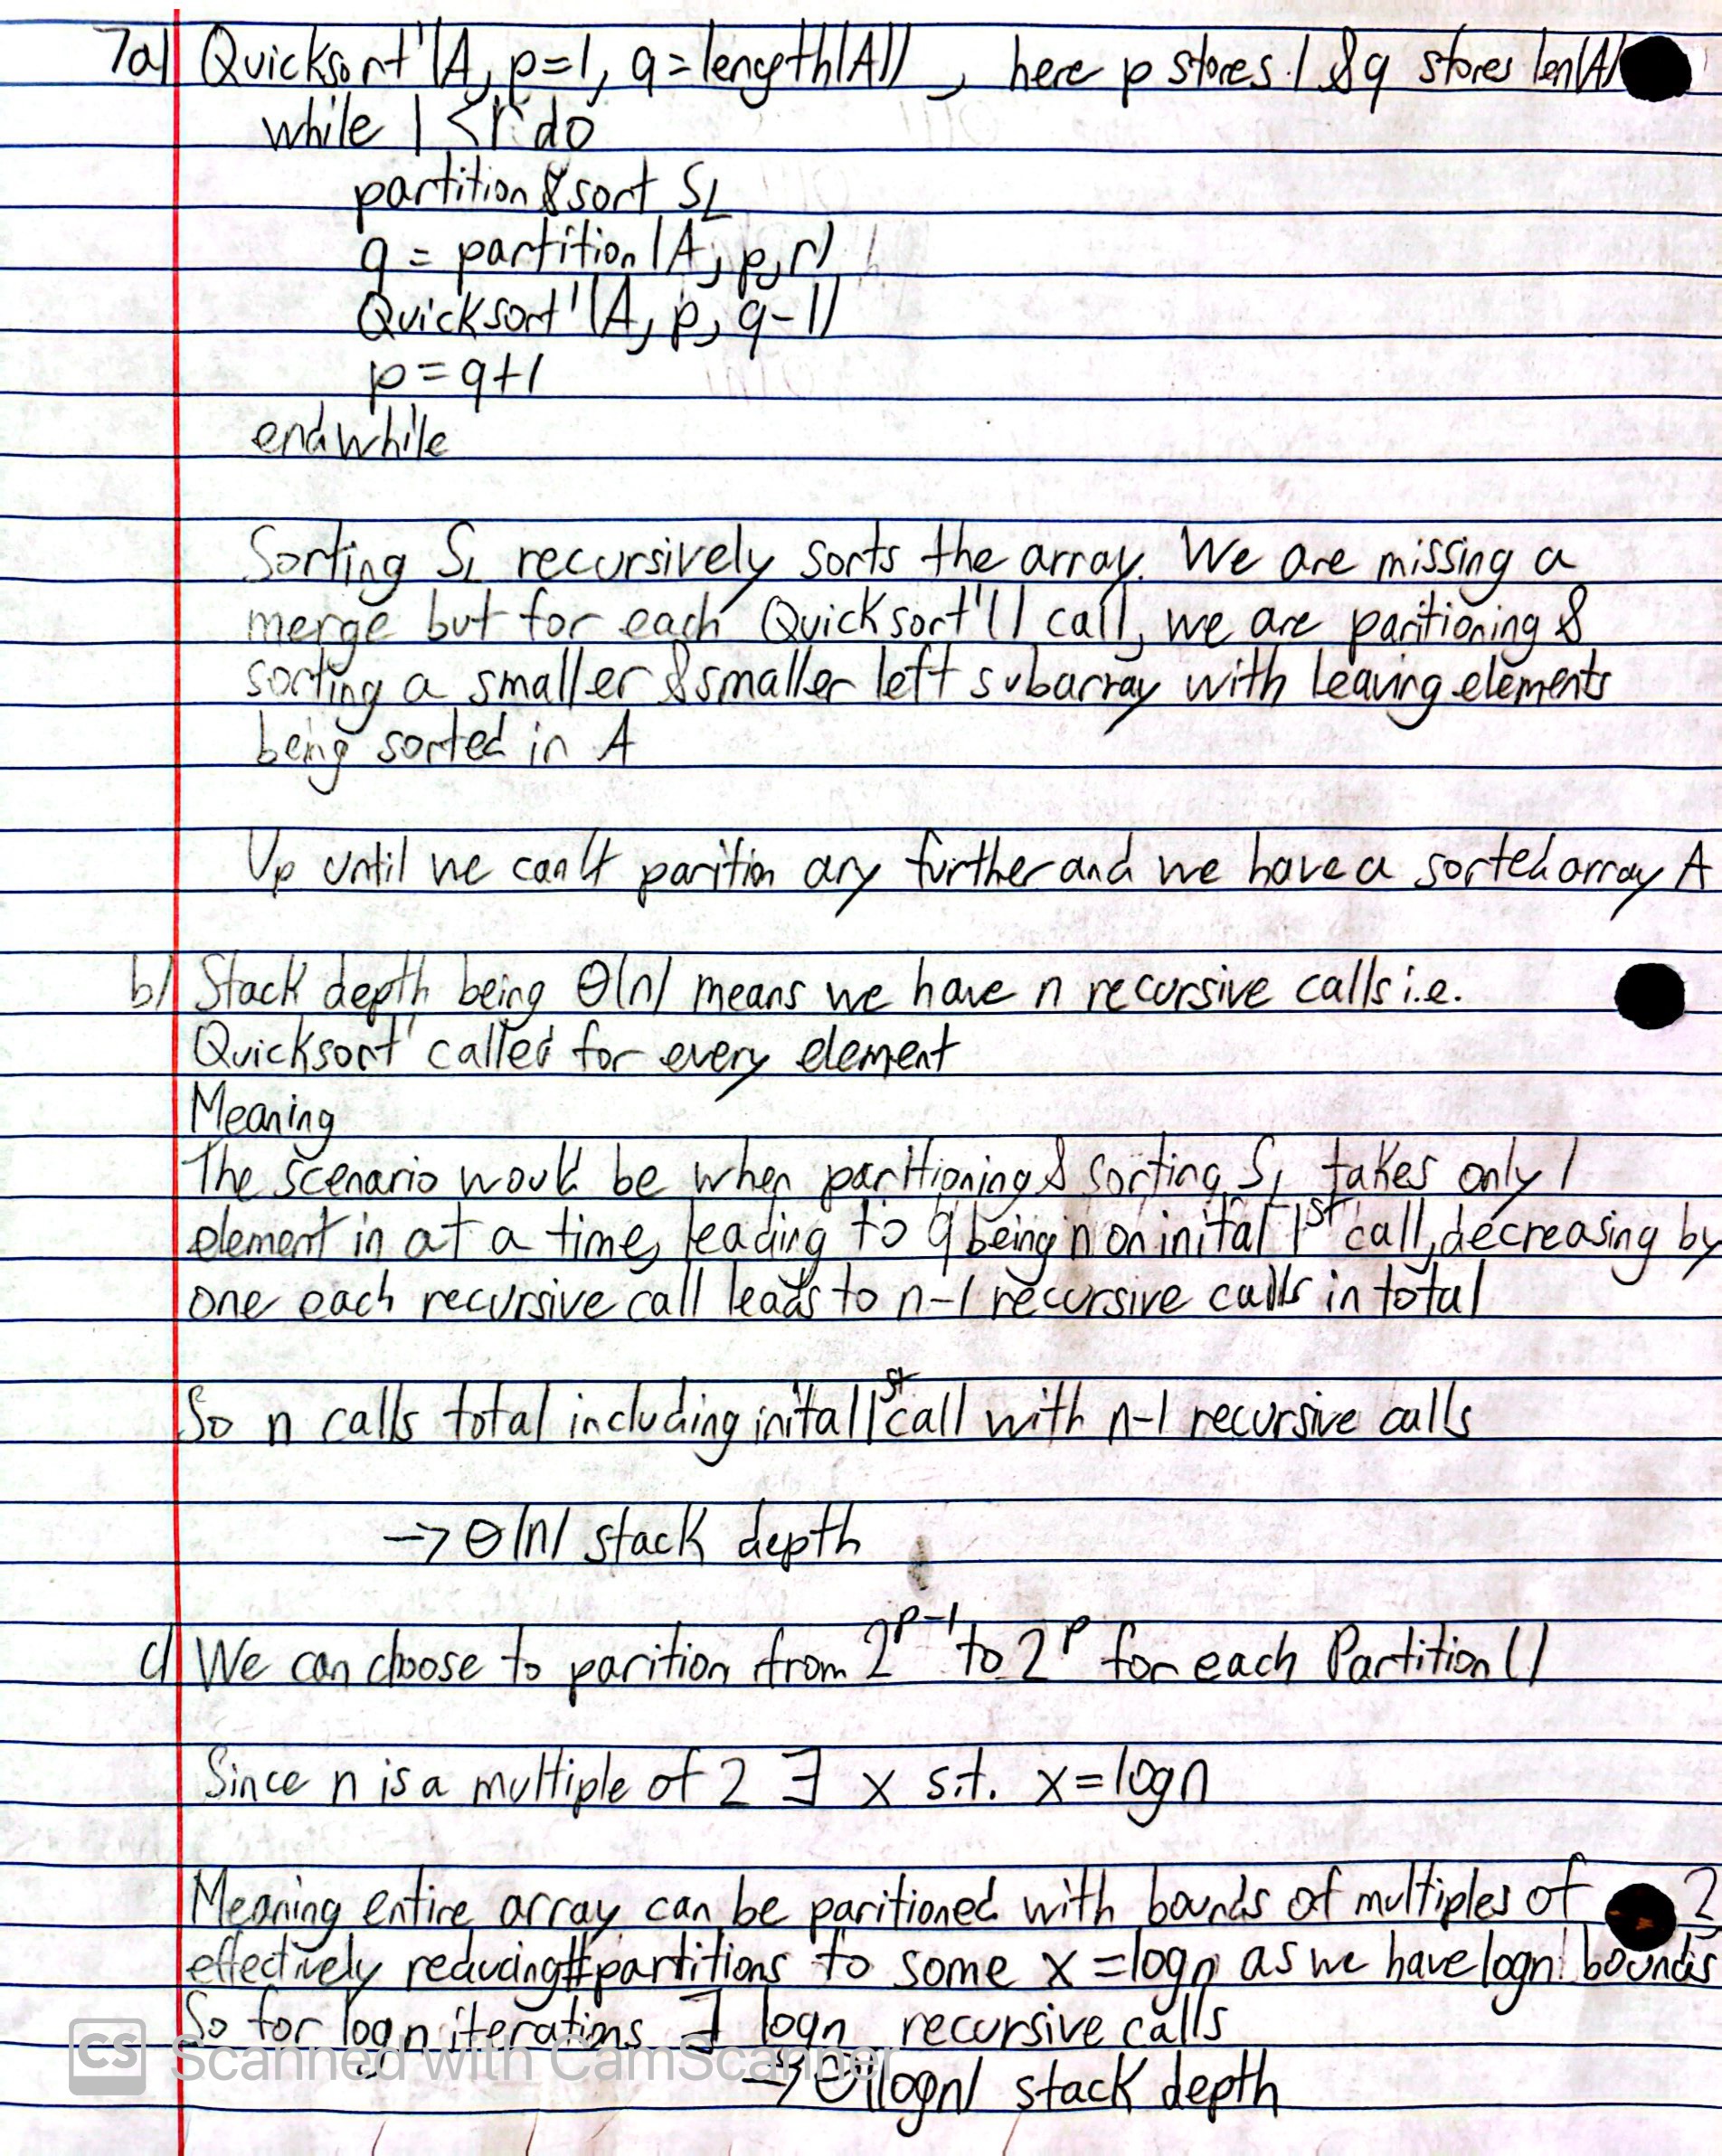 7a) Quicksort'(A, p=1, q=length(A)) , here p stores 1 & q stores len(A)
while 1 < r do
partition & sort SL
q = partition(A, p, r)
Quicksort'(A, p, q-1)
p = q+1
endwhile
Sorting SL recursively sorts the array. We are missing a
merge but for each Quicksort'() call, we are paritioning &
sorting a smaller & smaller left subarray with leaving elements
being sorted in A
Up until we can't parition any further and we have a sorted array A
b) Stack depth being Θ(n) means we have n recursive calls i.e.
Quicksort' called for every element
Meaning
The scenario would be when partitioning & sorting SL takes only 1
element in at a time, leading to q being n on inital 1st call, decreasing by
one each recursive call leads to n-1 recursive calls in total
So n calls total including inital 1st call with n-1 recursive calls
→ Θ(n) stack depth
c) We can choose to parition from 2^p-1 to 2^p for each Partition()
Since n is a multiple of 2 ∃ x s.t. x = logn
Meaning entire array can be paritioned with bounds of multiples of 2
effectively reducing # partitions to some x = logn as we have logn bounds
So for logn iterations ∃ logn recursive calls
→ Θ(logn) stack depth
CS Scanned with CamScanner